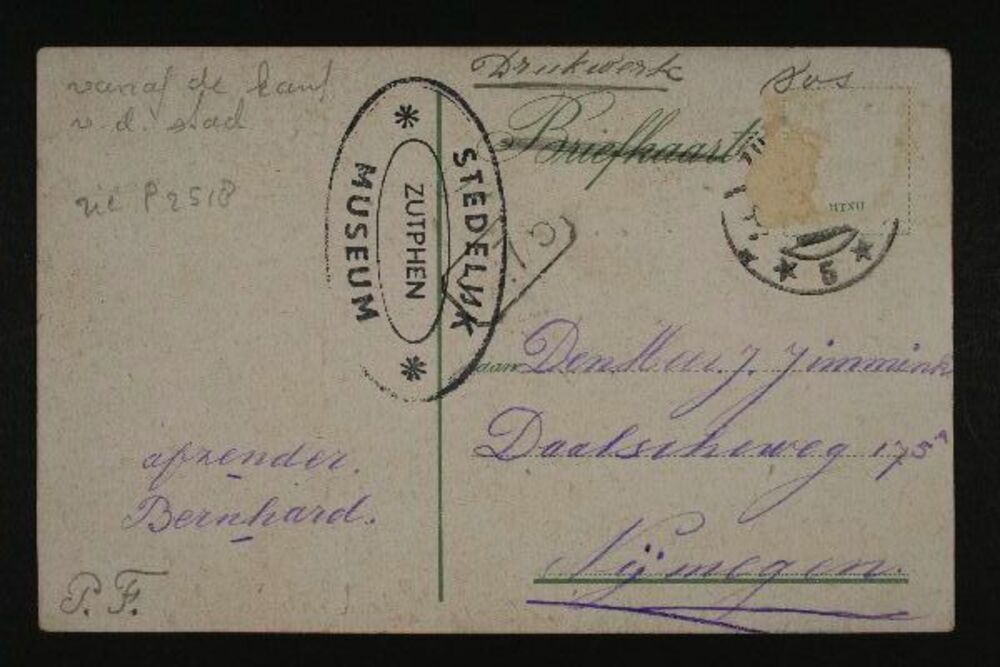 vanaf de kant
v. d. stad
P 2518
STEDELIJK
ZUTPHEN
MUSEUM
Drukwerk
Briefkaart
5
aan Den Heer J. Jimmink
Daalscheweg 175
Nijmegen.
afzender.
Bernhard.
P. F.